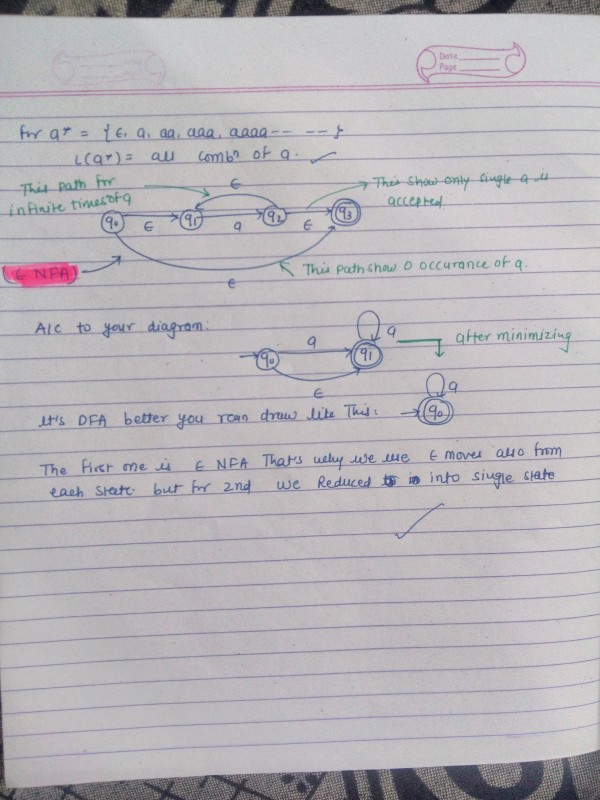 Date
Page
for a* = {ϵ, a, aa, aaa, aaaa-- -- }
L(a*) = all combn of a.
This path for
infinite times of a
ϵ
This show only single a is
accepted
q0 ϵ q1 a q2 ϵ q3
ϵ NFA
This path show 0 occurance of a.
ϵ
A/c to your diagram.
q0 a q1 a
after minimizing
ϵ
a
It's DFA better you can draw like This: q0
The first one is ϵ NFA That's why we use ϵ moves also from
each state but for 2nd we Reduced into single state